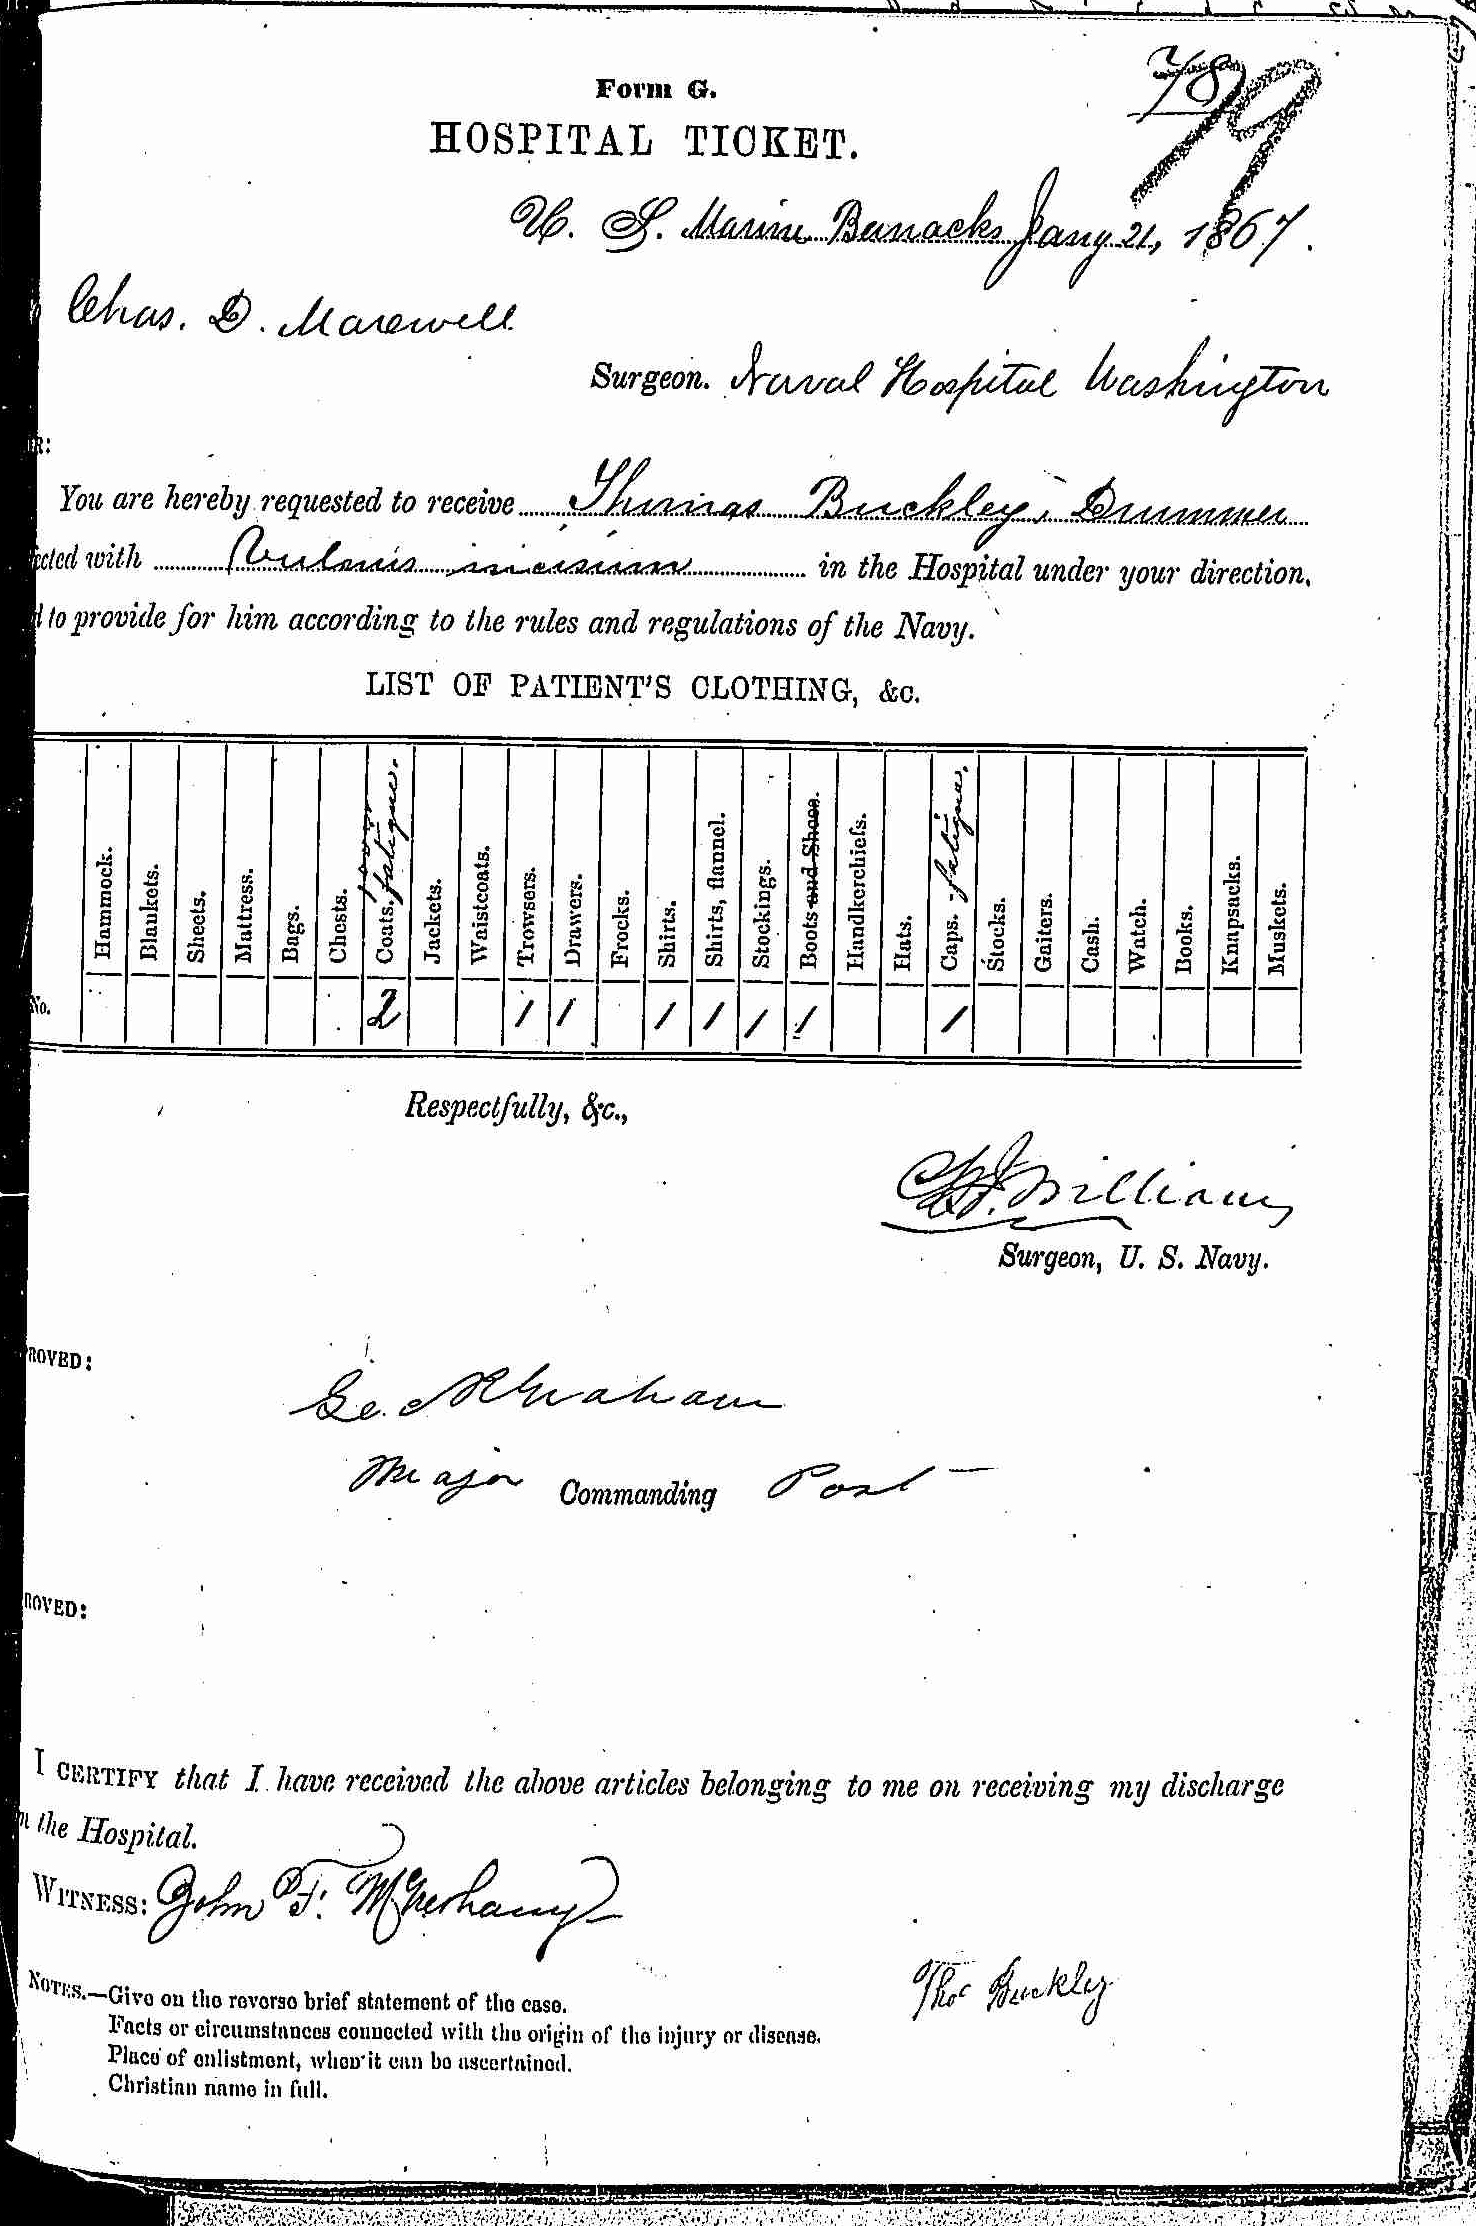 Form G.
78
79
HOSPITAL TICKET.
U. S. Marine Barracks Jany 21, 1867.
Chas. D. Maxwell
Surgeon. Naval Hospital Washington
R:
You are hereby requested to receive Thomas Buckley, Drummer
ected with Vulnus incisum in the Hospital under your direction,
d to provide for him according to the rules and regulations of the Navy.
LIST OF PATIENT'S CLOTHING, &c.
Hammock. Blankets. Sheets. Mattress. Bags. Chests. Coats. fatigue. Jackets. Waistcoats. Trowsers. Drawers. Frocks. Shirts. Shirts, flannel. Stockings. Boots and Shoes. Handkerchiefs. Hats. Caps. fatigue. Stocks. Gaiters. Cash. Watch. Books. Knapsacks. Muskets.
No. 2 1 1 1 1 1 1 1
Respectfully, &c.,
Williams
Surgeon, U. S. Navy.
ROVED:
Geo. R Graham
Major Commanding Post
ROVED:
I CERTIFY that I have received the above articles belonging to me on receiving my discharge
the Hospital.
WITNESS: John F.
Thos Buckley
NOTES.—Give on the reverse brief statement of the case.
Facts or circumstances connected with the origin of the injury or disease.
Place of enlistment, when it can be ascertained.
Christian name in full.